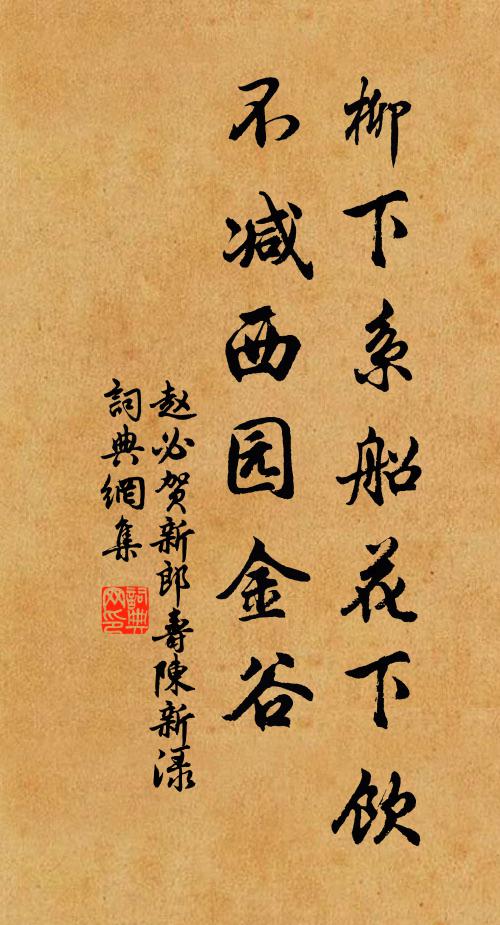 柳下系船花下饮
不减西园金谷
赵必贺新郎壽陳新渌
詞典網集
詞典网印